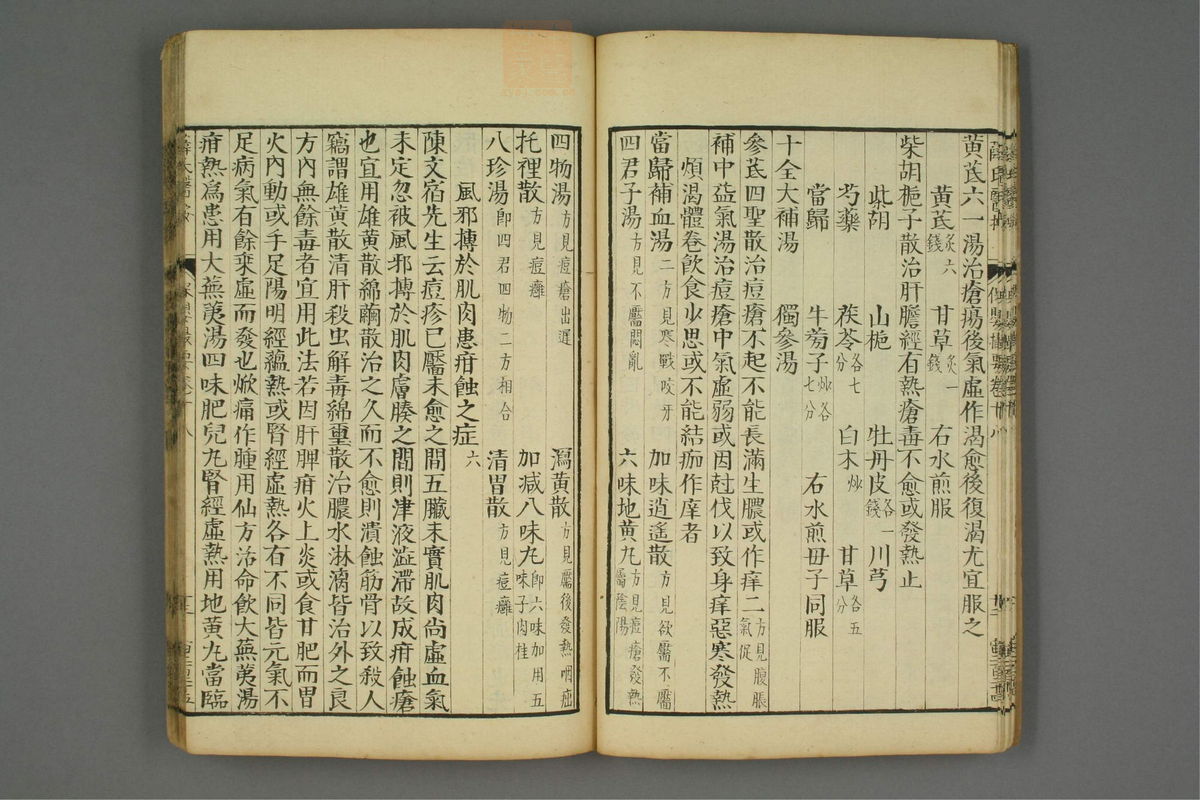 黄芪六一湯治瘡瘍後氣虚作渴愈後復渴尤宜服之
黄芪炙六錢 甘草炙一錢 右水煎服
柴胡梔子散治肝膽經有熱瘡毒不愈或發熱止
柴胡 山梔 牡丹皮各一錢 川芎
芍藥 茯苓各七分 白术炒 甘草各五分
當歸 牛蒡子炒各七分 右水煎母子同服
十全大補湯 獨參湯
參芪四聖散治痘瘡不起不能長滿生膿或作痒二方見腹脹氣促
補中益氣湯治痘瘡中氣虚弱或因尅伐以致身痒惡寒發熱
煩渴體卷飲食少思或不能結痂作痒者
當歸補血湯二方見寒戰咬牙 加味逍遥散方見欲靨不靨
四君子湯方見不靨悶亂 六味地黄丸方見痘瘡發熱屬陰陽
四物湯方見痘瘡出遲 瀉黄散方見靨後發熱咽痘
托裡散方見痘癰 加减八味丸即六味加用五味子肉桂
八珍湯即四君四物二方相合 清胃散方見痘癰
風邪搏於肌肉患疳蝕之症六
陳文宿先生云痘疹已靨未愈之間五臟未實肌肉尚虚血氣
未定忽被風邪搏於肌肉膚腠之間則津液澁滯故成疳蝕瘡
也宜用雄黄散綿繭散治之久而不愈則潰蝕筋骨以致殺人
竊謂雄黄散清肝殺虫解毒綿璽散治膿水淋漓皆治外之良
方內無餘毒者宜用此法若因肝脾疳火上炎或食甘肥而胃
火內動或手足陽明經蘊熱或腎經虚熱各有不同皆元氣不
足病氣有餘乘虚而發也焮痛作腫用仙方治命飲大蕪荑湯
疳熱爲患用大蕪荑湯四味肥兒丸腎經虚熱用地黄丸當臨